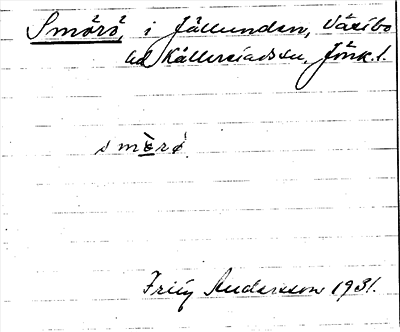 Smörö, i Fällunden, Väsibo
hd Källeriadssn, Jönk.l.
smèrö.
Fritz Andersson 1931.